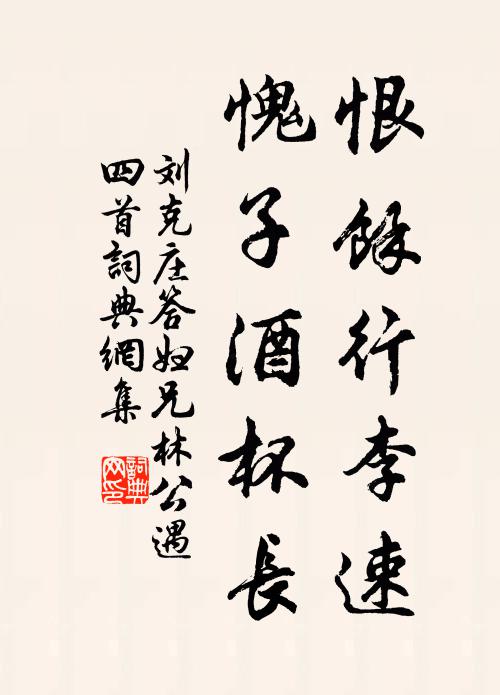 恨餘行李速
愧子酒杯長
刘克庄答妞兄林公遇
四首詞典網集
詞典網印